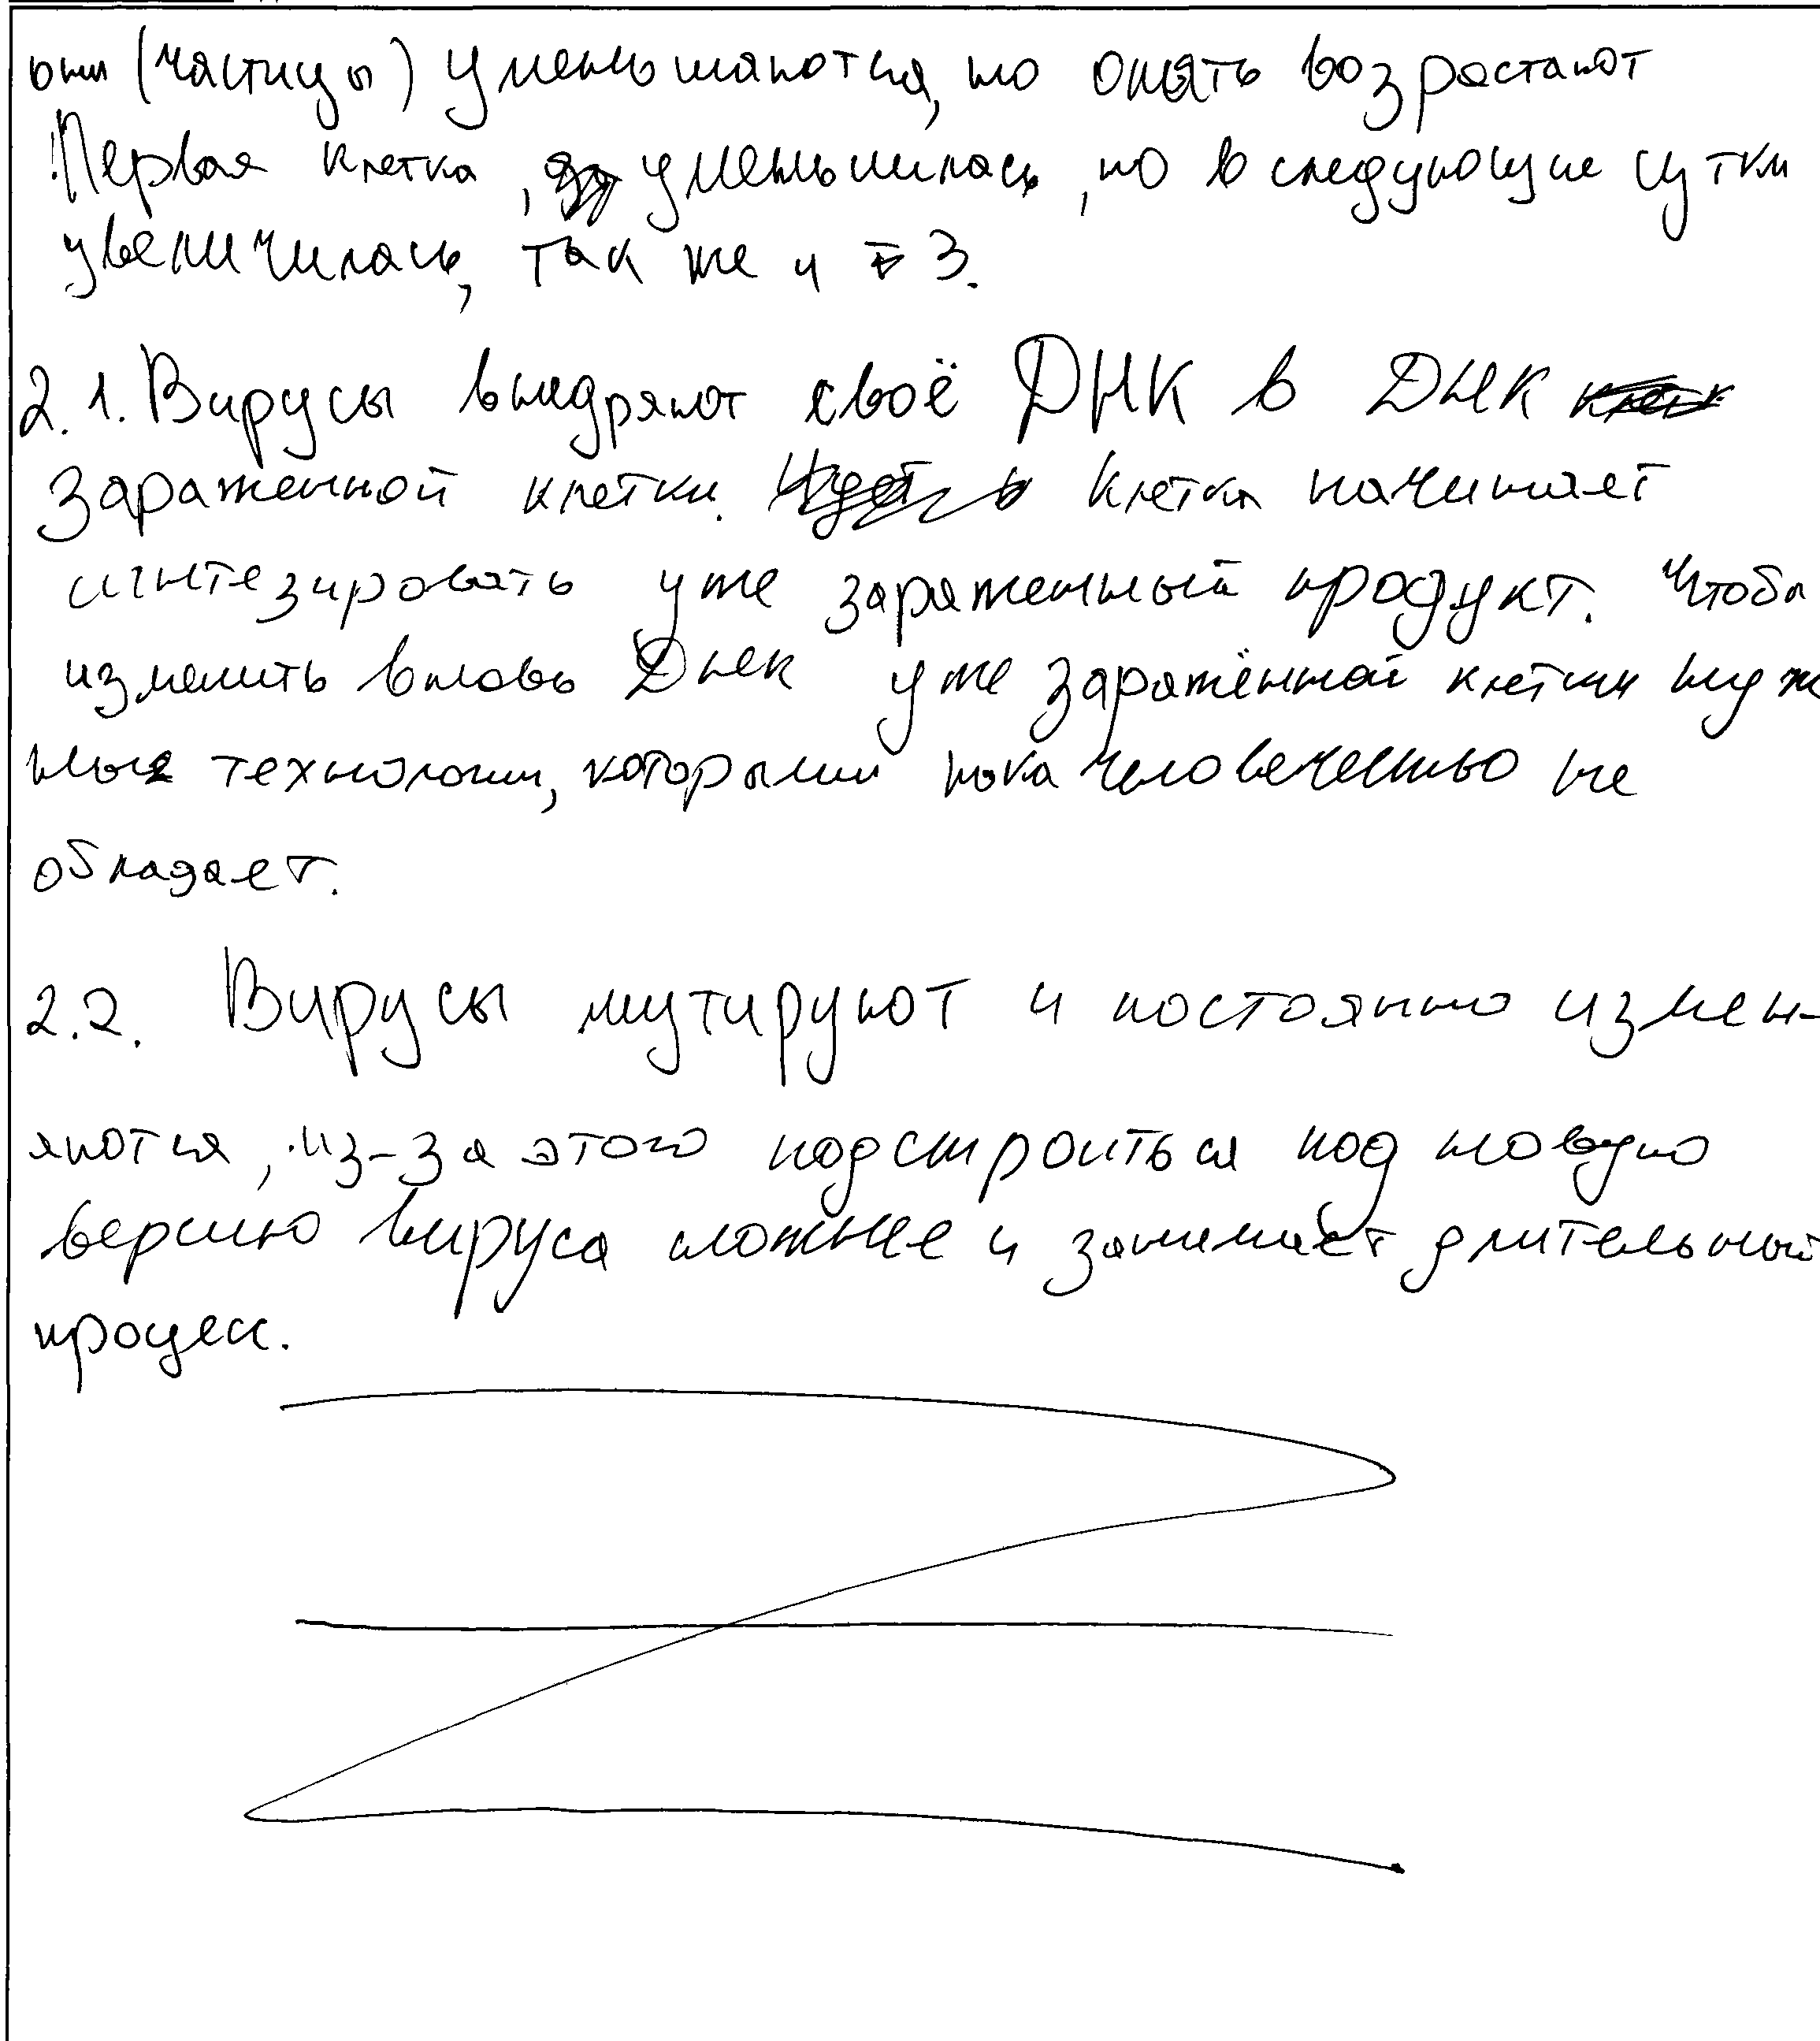 они (частицы) уменьшаются, но опять возрастают
Первая клетка, уменьшилась, но в следующие сутки
увеличилась, так же и 3.
2.1. Вирусы внедряют своё ДНК в ДНК
зараженной клетки. Клетка начинает
синтезировать уже зараженный продукт. Чтобы
изменить вновь ДНК уже заражённой клетки нуж
ные технологии, которыми пока человечество не
обладает.
2.2. Вирусы мутируют и постоянно измен-
яются, из-за этого подстроиться под новую
версию вируса сложнее и занимает длительный
процесс.